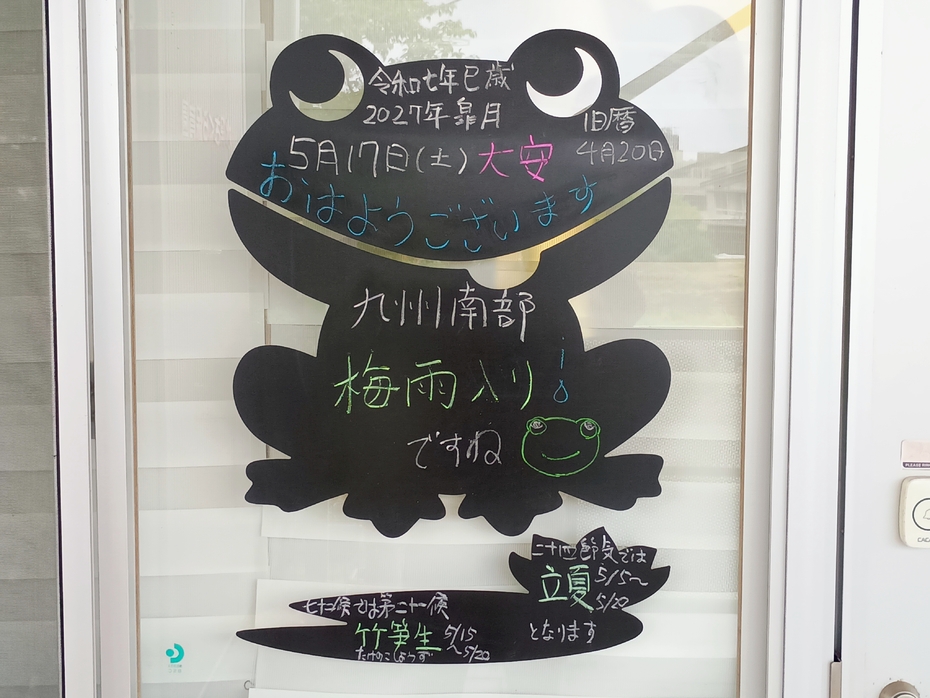 令和七年巳歳
2027年 皐月
旧暦
5月17日(土)大安
4月20日
おはようございます
九州南部
梅雨入り!
ですね
二十四節気では
立夏 5/5〜
5/20
となります
七十二候では第二十一候
竹笋生 5/15
〜5/20
たけのこしょうず